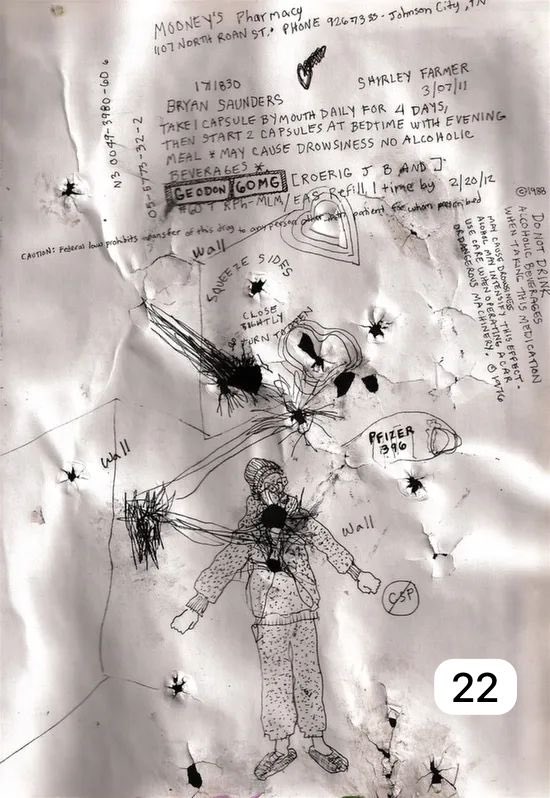 MOONEY'S Pharmacy
1107 NORTH ROAN ST. PHONE 9267333 - Johnson City, TN
171830
SHIRLEY FARMER
BRYAN SAUNDERS
3/07/11
TAKE 1 CAPSULE BY MOUTH DAILY FOR 4 DAYS,
THEN START 2 CAPSULES AT BEDTIME WITH EVENING
MEAL * MAY CAUSE DROWSINESS NO ALCOHOLIC
BEVERAGES *
GEODON 60MG
[ROERIG J B AND]
#60 RPh-MLM/EAS Refill 1 time by 2/20/12
CAUTION: Federal law prohibits transfer of this drug to any person other than patient for whom prescribed
N3 0049-3980-60 6
05-5773-32-2
©1988
DO NOT DRINK
ALCOHOLIC BEVERAGES
WHEN TAKING THIS MEDICATION
MAY CAUSE DROWSINESS
ALCOHOL MAY INTENSIFY THIS EFFECT.
USE CARE WHEN OPERATING A CAR
OR DANGEROUS MACHINERY. ©1976
Wall
SQUEEZE SIDES
CLOSE
TIGHTLY
TURN TO OPEN
PFIZER
396
Wall
Wall
CSP
22